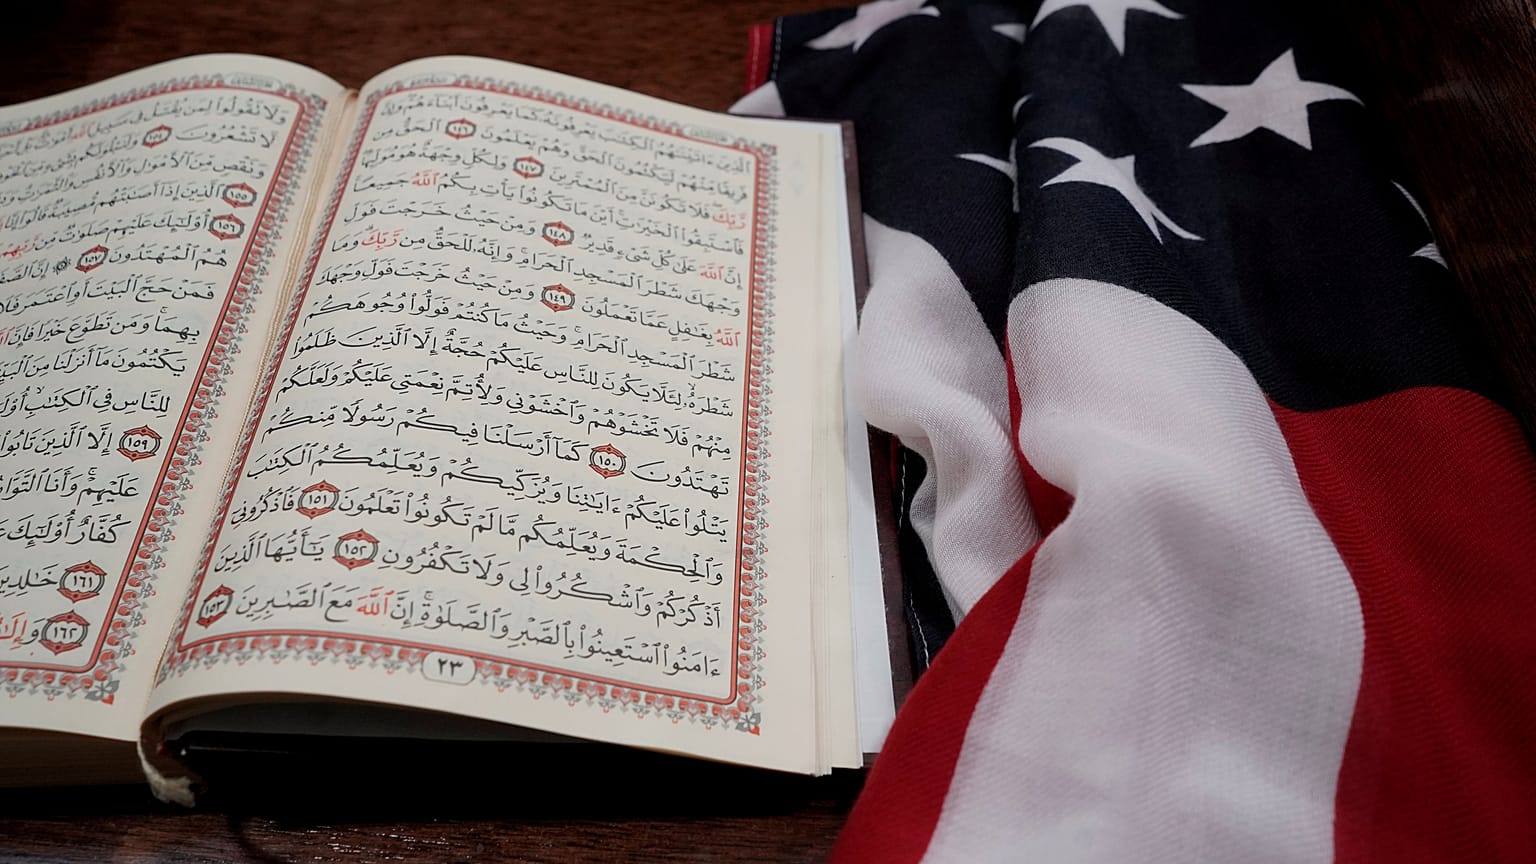 ٱلَّذِينَ ءَاتَيْنَٰهُمُ ٱلْكِتَٰبَ يَعْرِفُونَهُۥ كَمَا يَعْرِفُونَ أَبْنَآءَهُمْ وَإِنَّ
فَرِيقًا مِّنْهُمْ لَيَكْتُمُونَ ٱلْحَقَّ وَهُمْ يَعْلَمُونَ ١٤٦ ٱلْحَقُّ مِن
رَّبِّكَ فَلَا تَكُونَنَّ مِنَ ٱلْمُمْتَرِينَ ١٤٧ وَلِكُلٍّ وِجْهَةٌ هُوَ مُوَلِّيهَا
فَٱسْتَبِقُوا۟ ٱلْخَيْرَٰتِ أَيْنَ مَا تَكُونُوا۟ يَأْتِ بِكُمُ ٱللَّهُ جَمِيعًا
إِنَّ ٱللَّهَ عَلَىٰ كُلِّ شَىْءٍ قَدِيرٌ ١٤٨ وَمِنْ حَيْثُ خَرَجْتَ فَوَلِّ
وَجْهَكَ شَطْرَ ٱلْمَسْجِدِ ٱلْحَرَامِ وَإِنَّهُۥ لَلْحَقُّ مِن رَّبِّكَ وَمَا
ٱللَّهُ بِغَٰفِلٍ عَمَّا تَعْمَلُونَ ١٤٩ وَمِنْ حَيْثُ خَرَجْتَ فَوَلِّ وَجْهَكَ
شَطْرَ ٱلْمَسْجِدِ ٱلْحَرَامِ وَحَيْثُ مَا كُنتُمْ فَوَلُّوا۟ وُجُوهَكُمْ
شَطْرَهُۥ لِئَلَّا يَكُونَ لِلنَّاسِ عَلَيْكُمْ حُجَّةٌ إِلَّا ٱلَّذِينَ ظَلَمُوا۟
مِنْهُمْ فَلَا تَخْشَوْهُمْ وَٱخْشَوْنِى وَلِأُتِمَّ نِعْمَتِى عَلَيْكُمْ وَلَعَلَّكُمْ
تَهْتَدُونَ ١٥٠ كَمَآ أَرْسَلْنَا فِيكُمْ رَسُولًا مِّنكُمْ
يَتْلُوا۟ عَلَيْكُمْ ءَايَٰتِنَا وَيُزَكِّيكُمْ وَيُعَلِّمُكُمُ ٱلْكِتَٰبَ
وَٱلْحِكْمَةَ وَيُعَلِّمُكُم مَّا لَمْ تَكُونُوا۟ تَعْلَمُونَ ١٥١ فَٱذْكُرُونِىٓ
أَذْكُرْكُمْ وَٱشْكُرُوا۟ لِى وَلَا تَكْفُرُونِ ١٥٢ يَٰٓأَيُّهَا ٱلَّذِينَ
ءَامَنُوا۟ ٱسْتَعِينُوا۟ بِٱلصَّبْرِ وَٱلصَّلَوٰةِ إِنَّ ٱللَّهَ مَعَ ٱلصَّٰبِرِينَ ١٥٣
٢٣
وَلَا تَقُولُوا۟ لِمَن يُقْتَلُ فِى سَبِيلِ ٱللَّهِ أَمْوَٰتٌۢ بَلْ
لَّا تَشْعُرُونَ ١٥٤ وَلَنَبْلُوَنَّكُم بِشَىْءٍ مِّنَ
وَنَقْصٍ مِّنَ ٱلْأَمْوَٰلِ وَٱلْأَنفُسِ وَٱلثَّمَرَٰتِ
١٥٥ ٱلَّذِينَ إِذَآ أَصَٰبَتْهُم مُّصِيبَةٌ قَالُوٓا۟ إِنَّا
١٥٦ أُو۟لَٰٓئِكَ عَلَيْهِمْ صَلَوَٰتٌ مِّن رَّبِّهِمْ
هُمُ ٱلْمُهْتَدُونَ ١٥٧ إِنَّ ٱلصَّفَا
فَمَنْ حَجَّ ٱلْبَيْتَ أَوِ ٱعْتَمَرَ فَلَا
بِهِمَا وَمَن تَطَوَّعَ خَيْرًا فَإِنَّ
يَكْتُمُونَ مَآ أَنزَلْنَا مِنَ
لِلنَّاسِ فِى ٱلْكِتَٰبِ
١٥٩ إِلَّا ٱلَّذِينَ تَابُوا۟
عَلَيْهِمْ وَأَنَا
كُفَّارٌ أُو۟لَٰٓئِكَ
١٦١ خَٰلِدِينَ
١٦٢